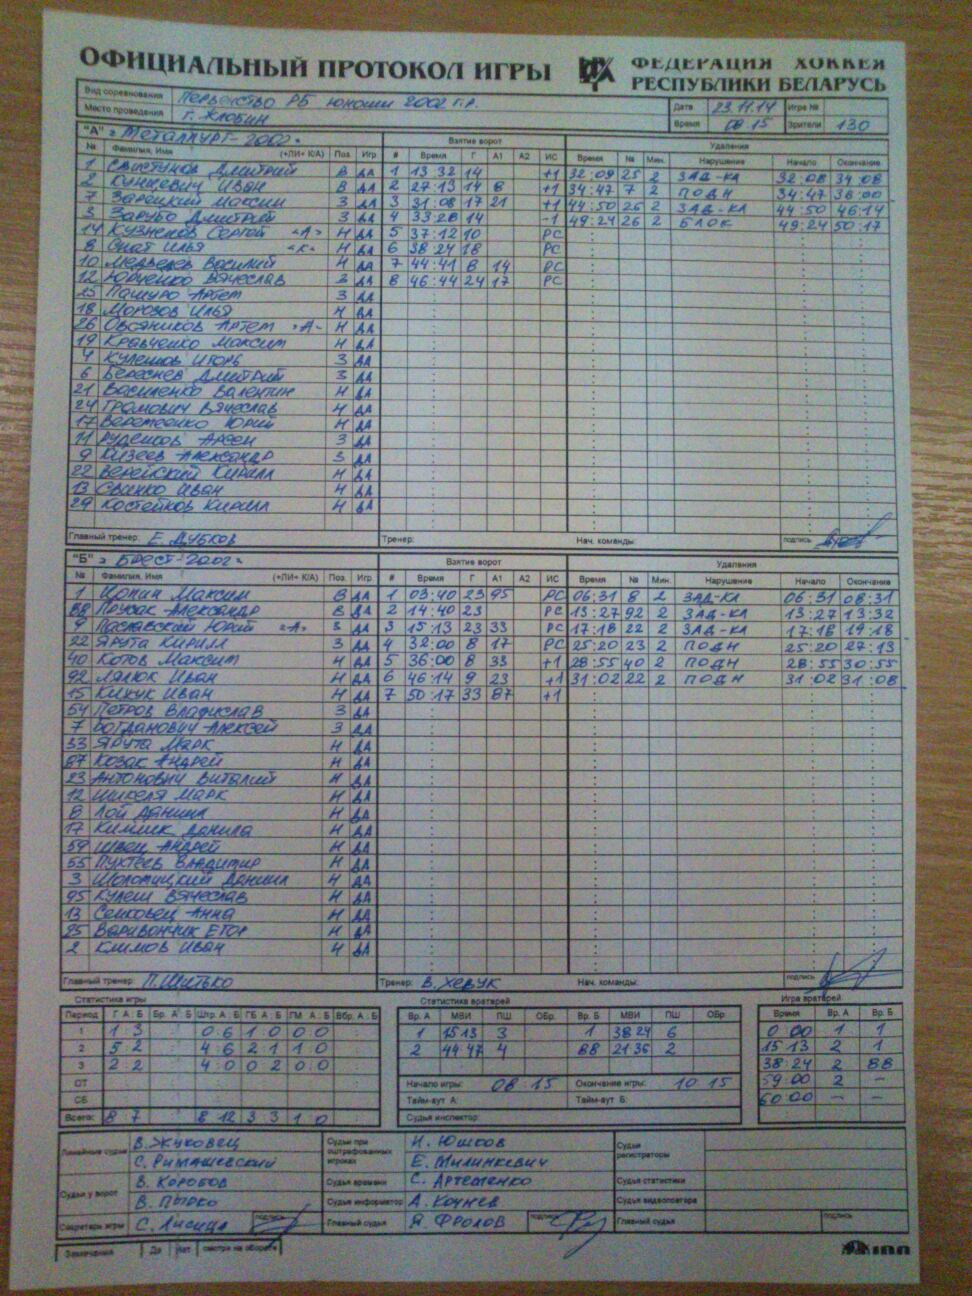 ОФИЦИАЛЬНЫЙ ПРОТОКОЛ ИГРЫ ФЕДЕРАЦИЯ ХОККЕЯ РЕСПУБЛИКИ БЕЛАРУСЬ
Вид соревнования Первенство РБ юноши 2002 г.р. Дата 23.11.14 Игра №
Место проведения г. Жлобин Время 08 15 Зрители 130
"А" Металлург-2002 Взятие ворот Удаления
№ Фамилия, Имя (+ЛИ+ К/А) Поз. Игр # Время Г А1 А2 ИС Время № Мин. Нарушение Начало Окончание
1 Свистунов Дмитрий В ДА 1 13 32 14 +1 32:09 25 2 ЗАД-КА 32 08 34 08
2 Кункевич Иван В ДА 2 27:13 14 8 +1 34:47 7 2 ПОДН 34:47 36:00
7 Зарецкий Максим З ДА 3 31:08 17 21 +1 44:50 26 2 ЗАД-КА 44 50 46:14
3 Зарубо Дмитрий З ДА 4 33:28 14 -1 49:24 26 2 БЛОК 49:24 50:17
14 Кузнецов Сергей "А" Н ДА 5 37:12 10 РС
8 Снат Илья "К" Н ДА 6 38:24 18
10 Медведев Василий Н ДА 7 44:41 8 14 РС
12 Юрченко Вячеслав З ДА 8 46:44 24 17 РС
15 Пашуро Артем З ДА
18 Морозов Илья Н ДА
26 Овсяников Артем "А" Н ДА
19 Кравченко Максим Н ДА
4 Кулешов Игорь З ДА
6 Береснев Дмитрий З ДА
21 Василенко Валентин Н ДА
24 Громович Вячеслав Н ДА
17 Веремеенко Юрий Н ДА
11 Рудешов Арсен З ДА
9 Кизеев Александр З ДА
22 Верейский Кирилл Н ДА
13 Свинко Иван Н ДА
29 Костейков Кирилл Н ДА
Главный тренер: Е. Дубков Тренер: Нач. команды: подпись
"Б" Брест-2002 Взятие ворот Удаления
№ Фамилия, Имя (+ЛИ+ К/А) Поз. Игр. # Время Г А1 А2 ИС Время № Мин. Нарушение Начало Окончание
1 Цопин Максим В ДА 1 03:40 23 95 РС 06:31 8 2 ЗАД-КА 06:31 08:31
88 Прузак Александр В ДА 2 14:40 23 РС 13:27 92 2 ЗАД-КА 13:27 13:32
9 Паславский Юрий "А" З ДА 3 15:13 23 33 РС 17:18 22 2 ЗАД-КА 17:18 19:18
22 Ярута Кирилл З ДА 4 32:00 8 17 РС 25:20 23 2 ПОДН 25:20 27:13
40 Котов Максим Н ДА 5 36:00 8 33 +1 28:55 40 2 ПОДН 28:55 30:55
92 Лялюк Иван Н ДА 6 46:14 9 23 +1 31:02 22 2 ПОДН 31 02 31:08
15 Кикук Иван Н ДА 7 50:17 33 87 +1
54 Петров Владислав З ДА
7 Богданович Алексей З ДА
33 Ярута Марк Н ДА
87 Козак Андрей Н ДА
23 Антонович Виталий Н ДА
12 Шикеля Марк Н ДА
8 Лой Даниил Н ДА
17 Климик Данила Н ДА
59 Швец Андрей Н ДА
55 Пухтеев Владимир Н ДА
3 Шолотицкий Даниил Н ДА
95 Кулеш Вячеслав Н ДА
13 Сенковец Анна Н ДА
25 Варивончик Егор Н ДА
2 Климов Иван Н ДА
Главный тренер: П. Шитько Тренер: В. Хевук Нач. команды: подпись
Статистика игры Статистика вратарей Игра вратарей
Период Г А : Б Бр. А : Б Штр. А : Б ГБ А : Б ГМ А : Б Вбр. А : Б Вр. А МВИ ПШ ОБр. Вр. Б МВИ ПШ ОБр Время Вр. А Вр. Б
1 1 3 0 6 1 0 0 0 1 15 13 3 1 38 24 6 0 00 1 1
2 5 2 4 6 2 1 1 0 2 44 47 4 88 21 36 2 15:13 2 1
3 2 2 4 0 0 2 0:0 38:24 2 88
ОТ Начало игры: 08 15 Окончание игры: 10 15 59:00 2 –
СБ Тайм-аут А: Тайм-аут Б: 60:00 – –
Всего: 8 7 8 12 3 3 1 0 Судья инспектор:
Линейные судьи В. Жуковец Судьи при оштрафованных игроках И. Юшков Судьи регистраторы
С. Римашевский Е. Милинкевич
Судьи у ворот В. Коробов Судья времени С. Артеменко Судья статистики
В. Пырко Судья информатор А. Кочнев Судья видеоповтора
Секретарь игры С. Лисица подпись Главный судья Я. Фролов подпись Главный судья подпись
Замечания Да Нет смотри на обороте